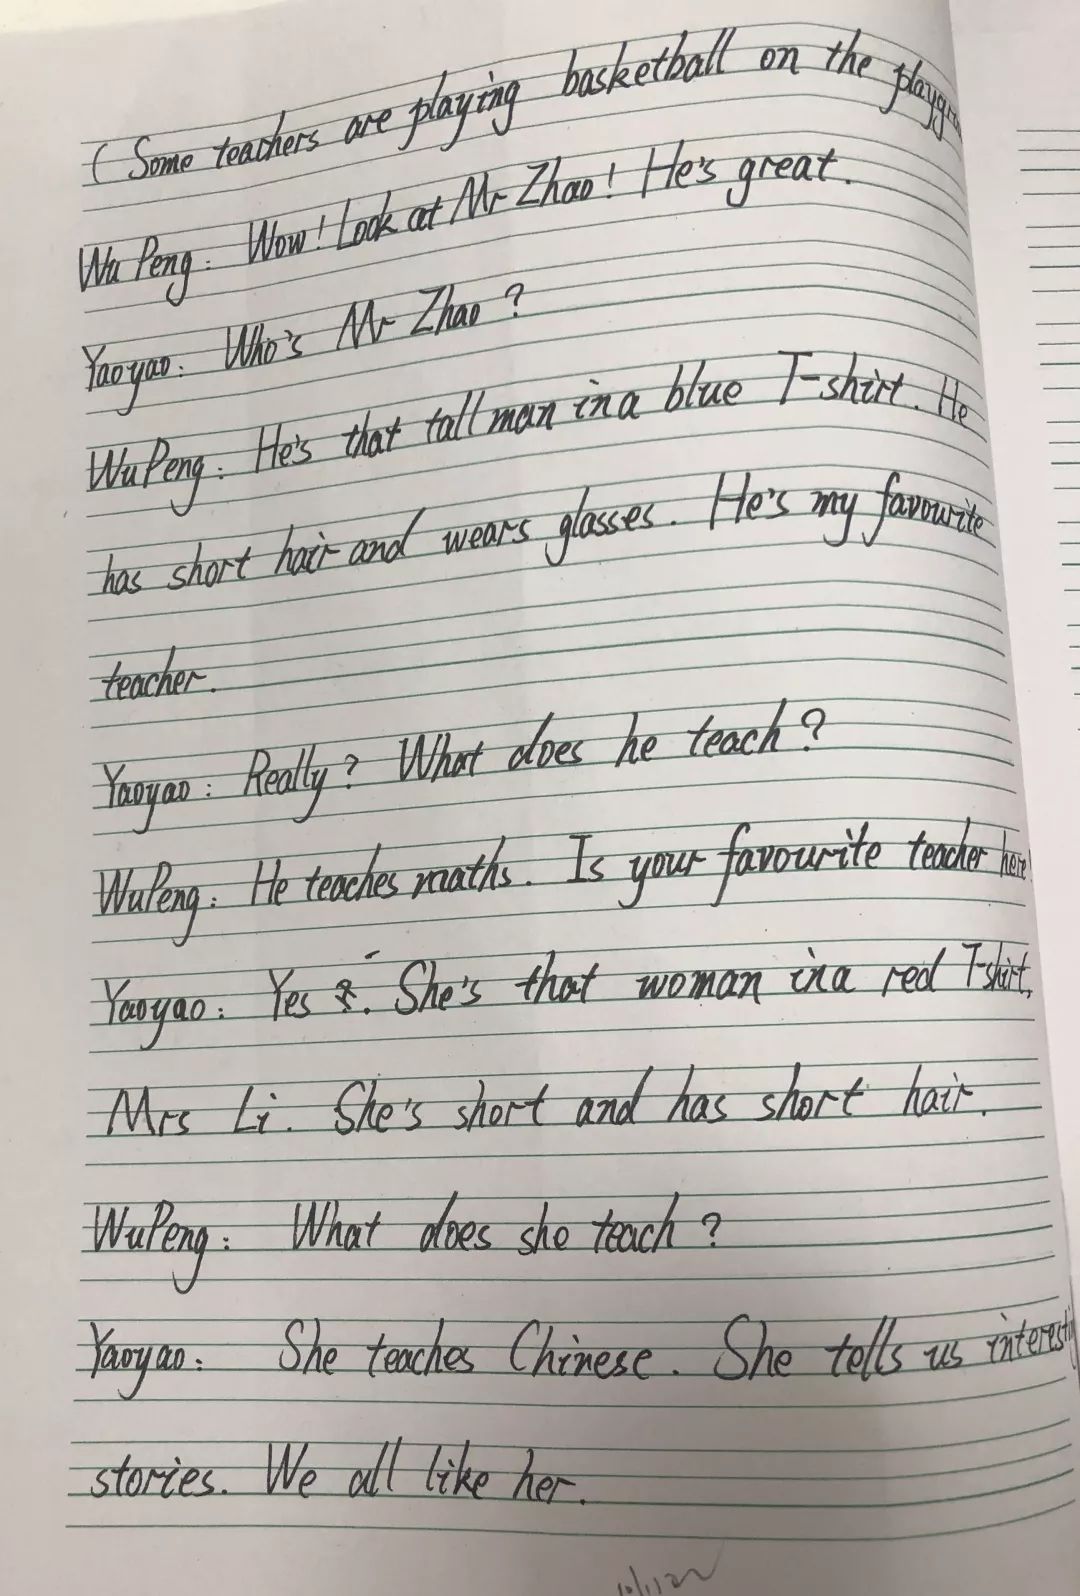 ( Some teachers are playing basketball on the
Wu Peng: Wow! Look at Mr Zhao! He's great.
Yaoyao: Who's Mr Zhao?
Wu Peng: He's that tall man in a blue T-shirt. He
has short hair and wears glasses. He's my favourite
teacher.
Yaoyao: Really? What does he teach?
Wu Peng: He teaches maths. Is your favourite teacher here
Yaoyao: Yes. She's that woman in a red T-shirt,
Mrs Li. She's short and has short hair.
Wu Peng: What does she teach?
Yaoyao: She teaches Chinese. She tells us
stories. We all like her.